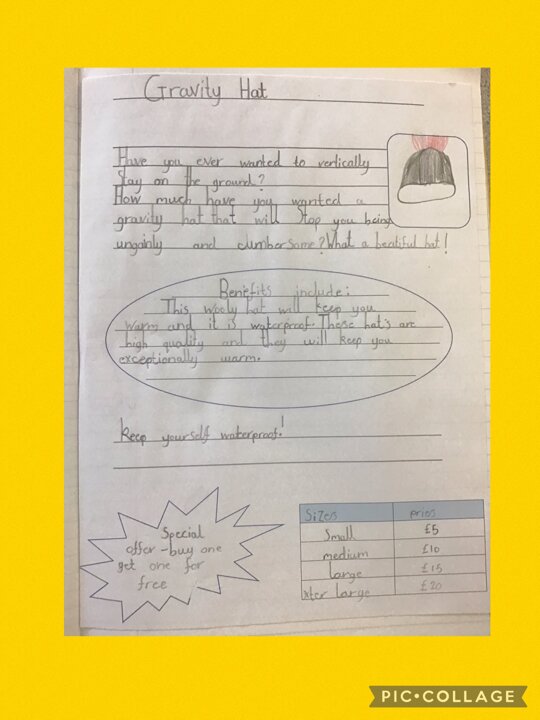 Gravity Hat
Have you ever wanted to vertically
stay on the ground?
How much have you wanted a
gravity hat that will stop you being
ungainly and clumbersome? What a beatiful hat!
Benefits include:
This wooly hat will keep you
warm and it is waterproof. These hat's are
high quality and they will keep you
exceptionally warm.
Keep yourself waterproof!
Special
offer - buy one
get one for
free
Sizers prios
Small £5
medium £10
large £15
xter large £20
PIC•COLLAGE